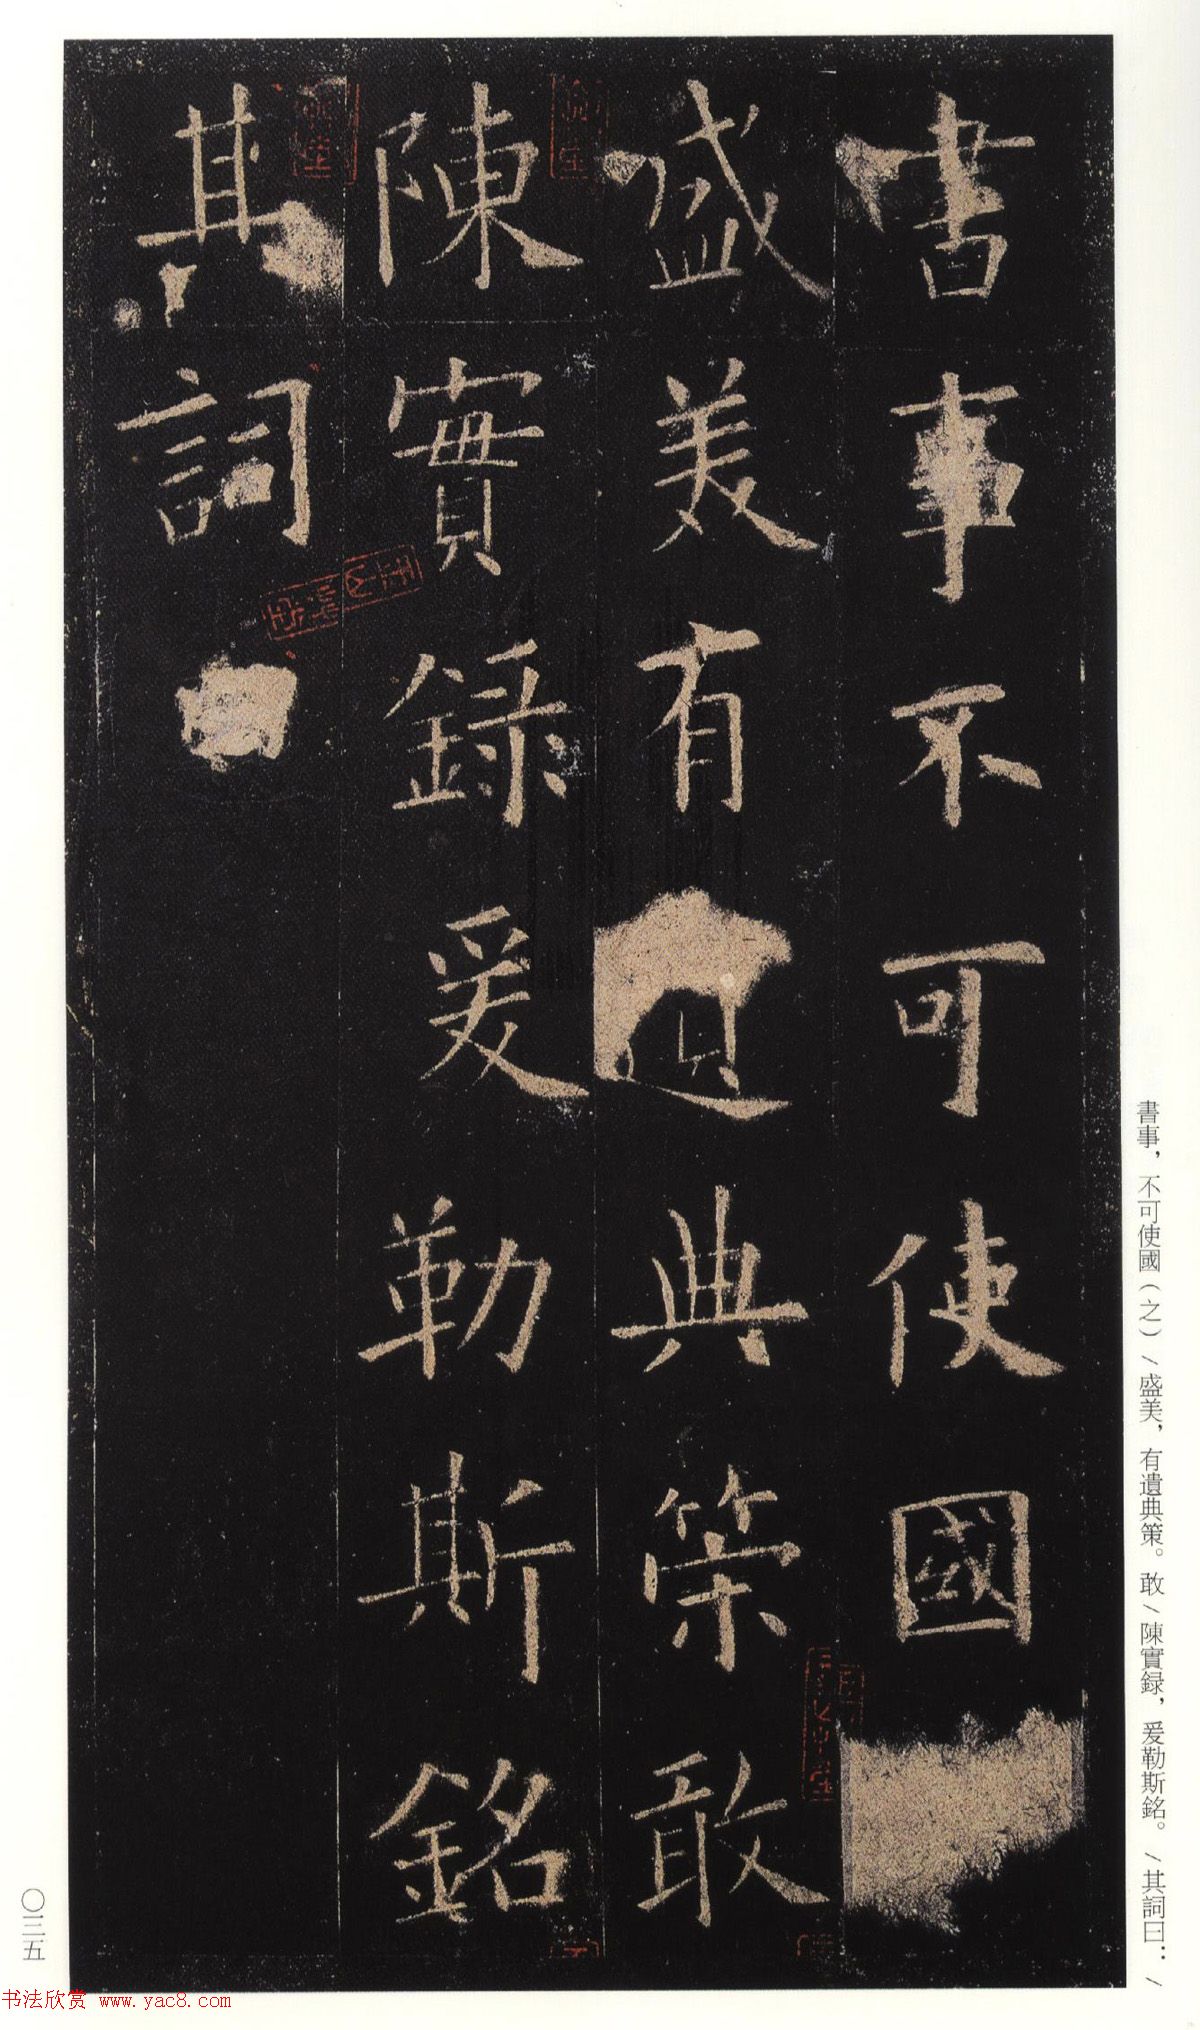 書事不可使國
盛美有遺典策敢
陳實録爰勒斯銘
其詞
書事，不可使國（之）/盛美，有遺典策。敢/陳實録，爰勒斯銘。/其詞曰：/
〇三五
书法欣赏 www.yac8.com